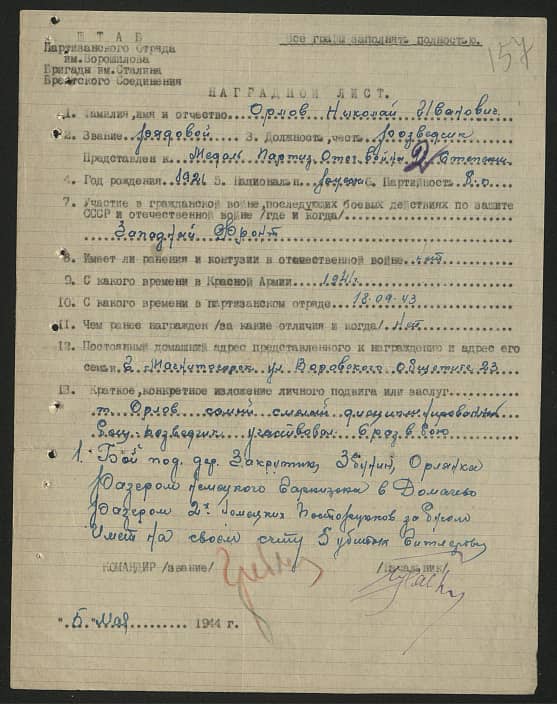 ШТАБ
Все графы заполнять полностью.
157
Партизанского Отряда
им. Ворошилова
Бригады им. Сталина
Брестского Соединения
НАГРАДНОЙ ЛИСТ.
1. Фамилия, имя и отчество Орлов Николай Иванович
2. Звание рядовой 3. Должность, часть розведчик
Представлен к Медали Партиз Отеч войны 2 степени
4. Год рождения 1921 5. Национальн. 6. Партийность б.п
7. Участие в гражданской войне, последующих боевых действиях по защите
СССР и отечественной войне /где и когда/
Западный Фронт
8. Имеет ли ранения и контузии в отечественной войне нет
9. С какого времени в Красной Армии 1941г
10. С какого времени в партизанском отряде 18.09.43
11. Чем ранее награжден /за какие отличия и когда/ нет
12. Постоянный домашний адрес представленного к награждению и адрес его
семьи г. Магнитогорск ул Воровского общежитие 23
13. Краткое, конкретное изложение личного подвига или заслуг
т. Орлов самый смелый
боец розведчик участвовал 6 раз в бою
1. Бой под дер. Закрутин, Збунин, Орлянка
немецкого Гарнизона в Домачево
2х немецких за Бугом
Имеет на своем счету 5 убитых Гитлеровцев
КОМАНДИР /звание/ /Начальник/
"5" мая 1944 г.